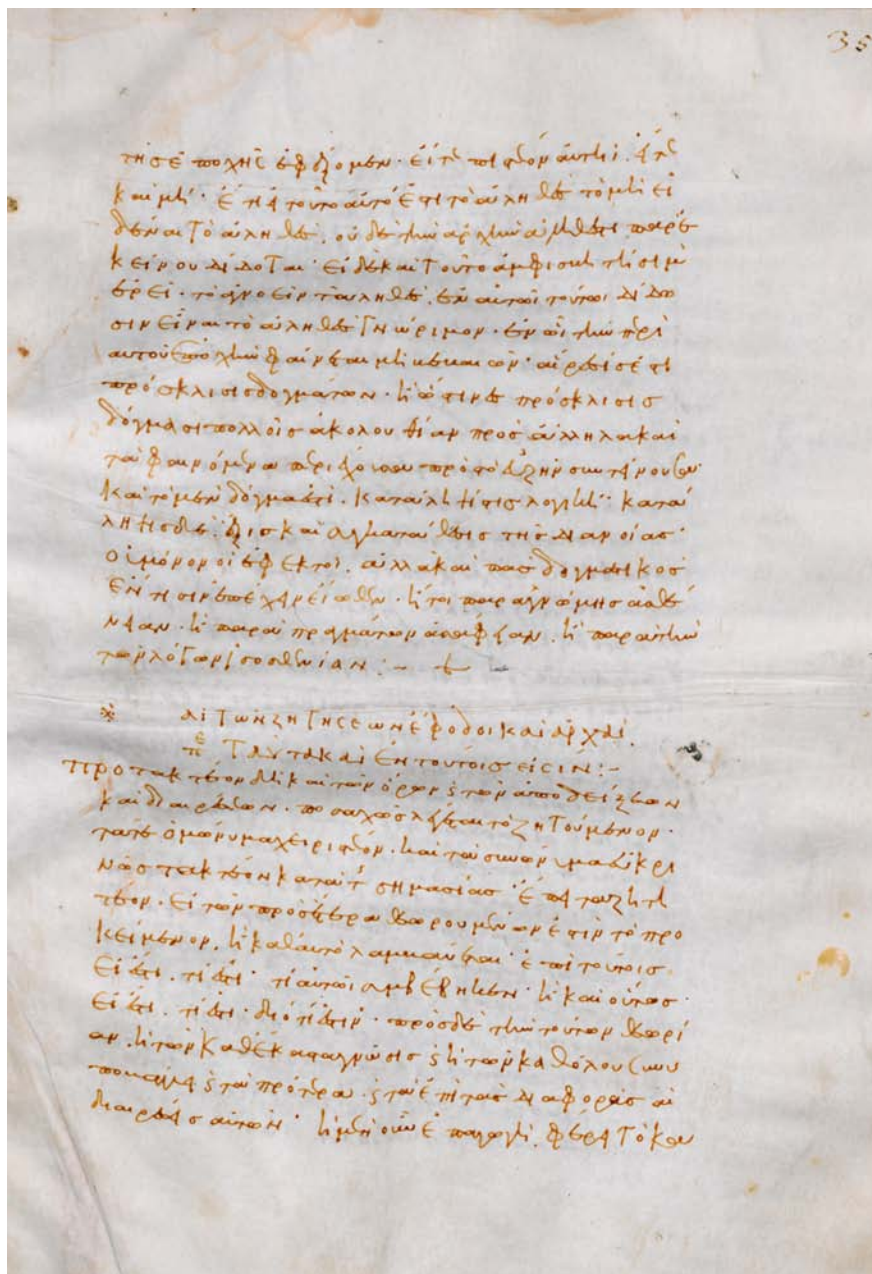 τῆς ἐποχῆς ἐφέξομεν· εἴτε πιστέον αὐτῆι· εἴτε
καὶ μή· ἔτι εἰ τοῦτο αὐτό ἐστι τὸ ἀληθὲς τὸ μὴ εἰ
δέναι τὸ ἀληθὲς, οὐδὲ τὴν ἀρχὴν ἀληθές τι παρ' ἐ
κείνου δίδοται· εἰ δὲ καὶ τοῦτο ἀμφισβητήσιμον
ἐρεῖ· τὸ ἀγνοεῖν τἀληθὲς, ἐν αὐτῶι τούτωι δίδω
σιν εἶναι τὸ ἀληθὲς γνώριμον· ἐν ὧι τὴν περὶ
αὐτοῦ ἐποχὴν φαίνεται μὴ βεβαιῶν· αἵρεσίς ἐστι
πρόσκλισις δογμάτων· ἢ ὥς τινες πρόσκλισις
δόγμασι πολλοῖς ἀκολουθίαν πρὸς ἄλληλα καὶ
τὰ φαινόμενα περιέχουσα πρὸς τὸ εὖ ζῆν συντείνουσαν·
καὶ τὸ μὲν δόγμα ἐστὶ· κατάληψίς τις λογική· κατά
ληψις δὲ· ἕξις καὶ συγκατάθεσις τῆς διανοίας·
οὐ μόνον οἱ ἐφεκτοὶ, ἀλλὰ καὶ πᾶς δογματικὸς
ἔν τισιν ἐπέχειν εἴωθεν· ἤτοι παρὰ γνώμης ἀσθέ
νειαν· ἢ παρὰ πραγμάτων ἀσάφειαν. ἢ παρὰ τὴν
τῶν λόγων ἰσοσθένειαν :-
αἱ τῶν ζητήσεων ἔφοδοι καὶ ἀρχαί,
πε ταῦτα καὶ ἐν τούτοις εἰσίν :-
προτακτέον δὴ καὶ τῶν ὅρων ϛ τῶν ἀποδείξεων
καὶ διαιρέσεων· ποσαχῶς λέγεται τὸ ζητούμενον·
τά τε ὁμώνυμα χειριστέον· καὶ τὰ συνώνυμα εὐκρι
νῶς τακτέον κατὰ τ σημασίας· ἔπειτα ζητη
τέον· εἰ τῶν πρὸς ἕτερα θεωρουμένων ἐστὶν τὸ προ
κείμενον, ἢ καθ' αὑτὸ λαμβάνεται· ἐπὶ τούτοις
εἰ ἔστι· τί ἐστι· τί αὐτῶι συμβέβηκεν· ἢ καὶ οὕτως·
εἰ ἔστι· τί ἐστι· διότι ἐστίν· πρὸς δὲ τὴν τούτων θεωρί
αν, ἡ τῶν καθέκαστα γνῶσις ϛ ἡ τῶν καθόλου
ϛ τὰ πρότερα· ϛ τὰς διαφορὰς αἱ
διαιρέσεις αὐτῶν· ἡ μὲν οὖν ἐπαγωγὴ, φέρει τὸ